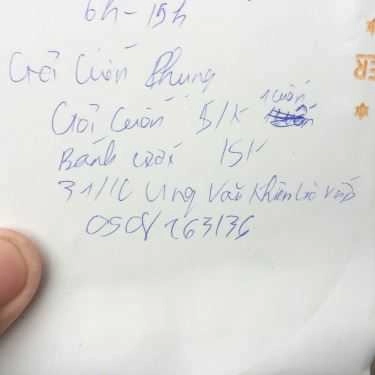 6h - 15h
Gỏi Cuốn Phụng
Gỏi cuốn 5/k 1 cuốn
Bánh ướt 15k
31/1C Ung Văn Khiêm Gò Vấp
0908263136